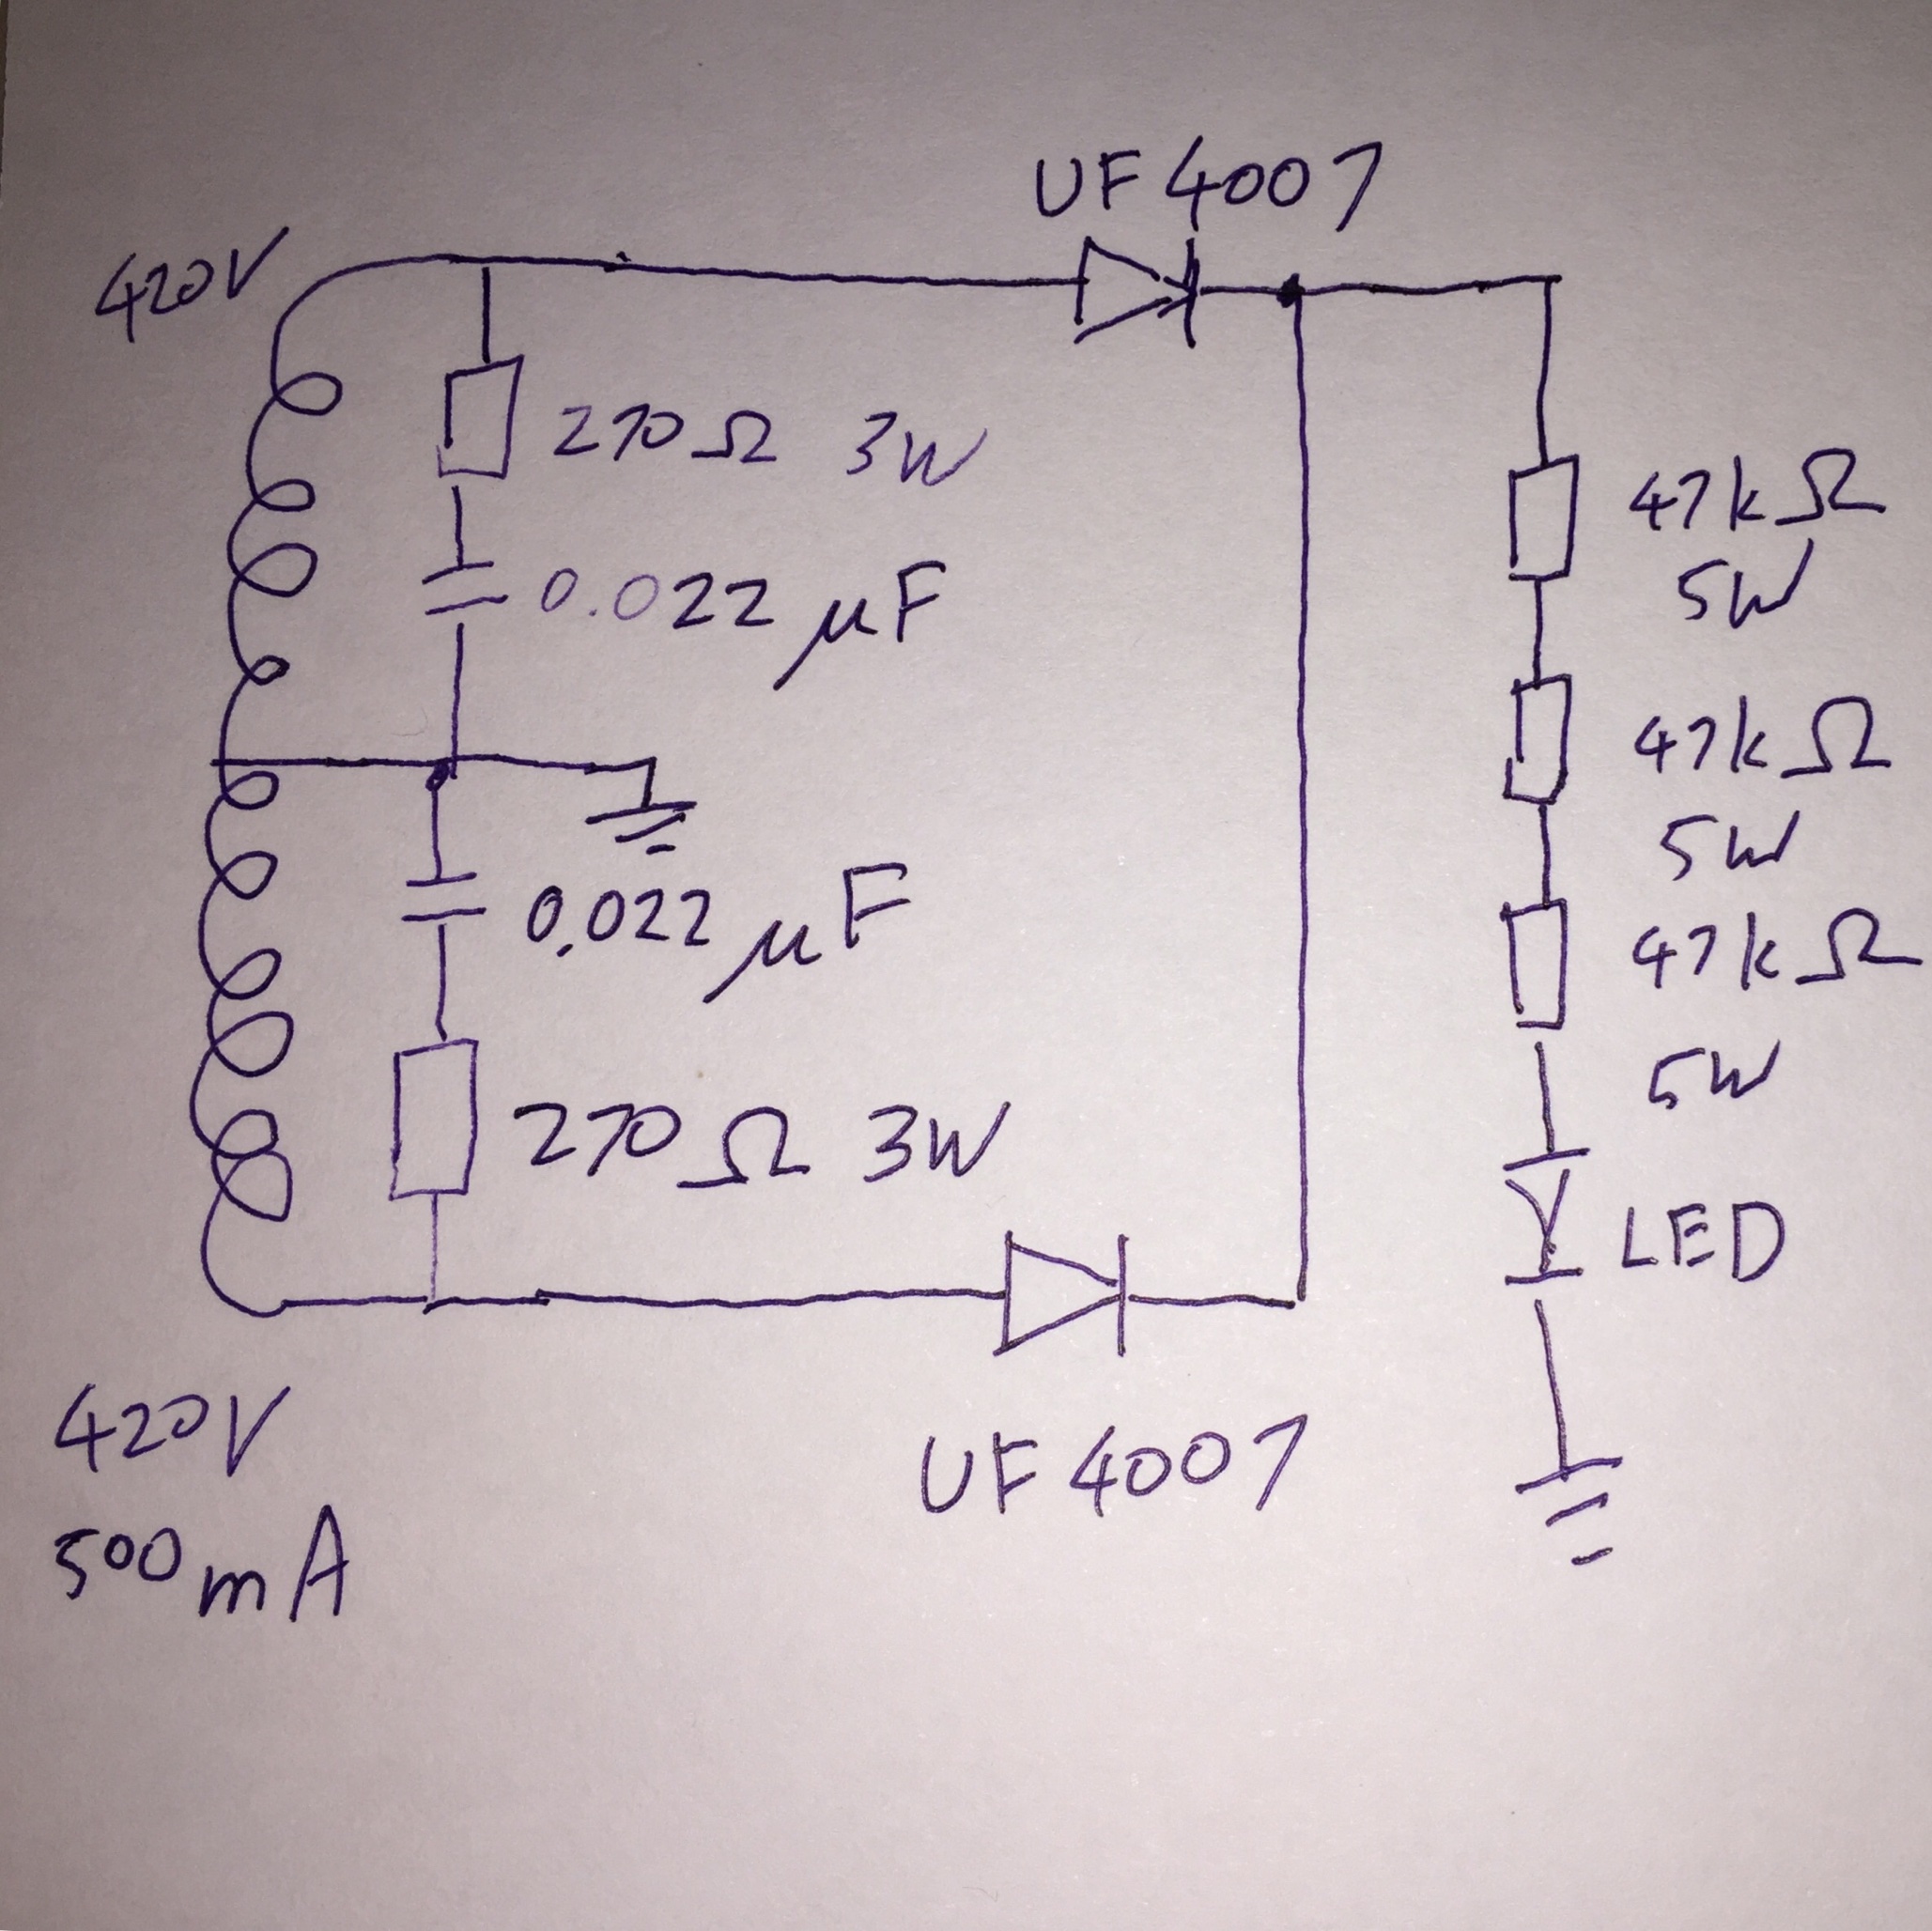 UF4007
420V
270Ω 3W
47kΩ
5W
0.022 μF
47kΩ
5W
0.022 μF
47kΩ
5W
270Ω 3W
LED
420V
500mA
UF4007